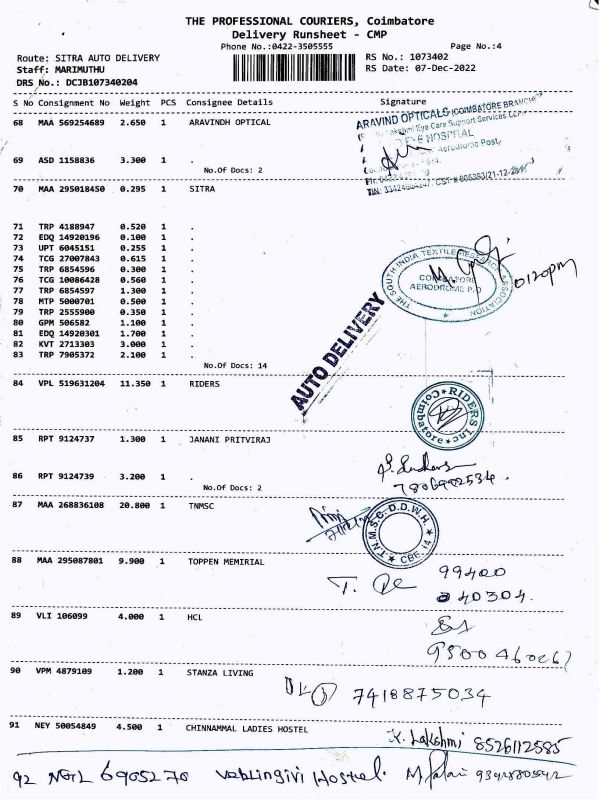 THE PROFESSIONAL COURIERS, Coimbatore
Delivery Runsheet - CMP
Phone No.:0422-3505555 Page No.:4
Route: SITRA AUTO DELIVERY RS No.: 1073402
Staff: MARIMUTHU RS Date: 07-Dec-2022
DRS No.: DCJB107340204
S No Consignment No Weight PCS Consignee Details Signature
68 MAA 569254689 2.650 1 ARAVINDH OPTICAL
ARAVIND OPTICALS (COIMBATORE BRANCH)
Eye Care Support Services
EYE HOSPITAL
Aerodrome Post,
69 ASD 1158836 3.300 1 .
No.Of Docs: 2
70 MAA 295018450 0.295 1 SITRA
71 TRP 4188947 0.520 1 .
72 EDQ 14920196 0.100 1 .
73 UPT 6045151 0.255 1 .
74 TCG 27007843 0.615 1 .
75 TRP 6854596 0.300 1 .
76 TCG 10086428 0.560 1 .
77 TRP 6854597 1.300 1 .
78 MTP 5000701 0.500 1 .
79 TRP 2555900 0.350 1 .
80 GPM 506582 1.100 1 .
81 EDQ 14920301 1.700 1 .
82 KVT 2713303 3.000 1 .
83 TRP 7905372 2.100 1 .
No.Of Docs: 14
THE SOUTH INDIA TEXTILE RESEARCH ASSOCIATION
COIMBATORE
AERODROME P.O
AUTO DELIVERY
84 VPL 519631204 11.350 1 RIDERS
RIDERS Inc
Coimbatore
85 RPT 9124737 1.300 1 JANANI PRITVIRAJ
86 RPT 9124739 3.200 1 .
No.Of Docs: 2
87 MAA 268836108 20.800 1 TNMSC
T.N.M.S.C. D.D.W.H.
CBE 14
88 MAA 295087801 9.900 1 TOPPEN MEMIRIAL
99400
40304.
89 VLI 106099 4.000 1 HCL
90 VPM 4879109 1.200 1 STANZA LIVING
7418875034
91 NEY 50054849 4.500 1 CHINNAMMAL LADIES HOSTEL
K. Lakshmi 8526112585
92 NGL 6905270 Hostel.